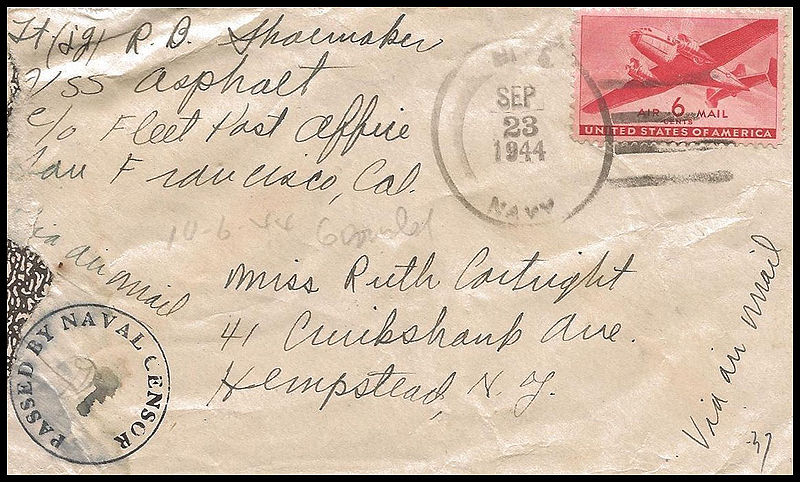 Lt (jg) R. B. Shoemaker
USS Asphalt
c/o Fleet Post Office
San Francisco, Cal.
Via air mail
SEP
23
1944
NAVY
AIR 6 MAIL
CENTS
UNITED STATES OF AMERICA
10-6-44
Miss Ruth Cortright
41 Cruikshank Ave.
Hempstead, N. Y.
Via air mail
-37
PASSED BY NAVAL CENSOR